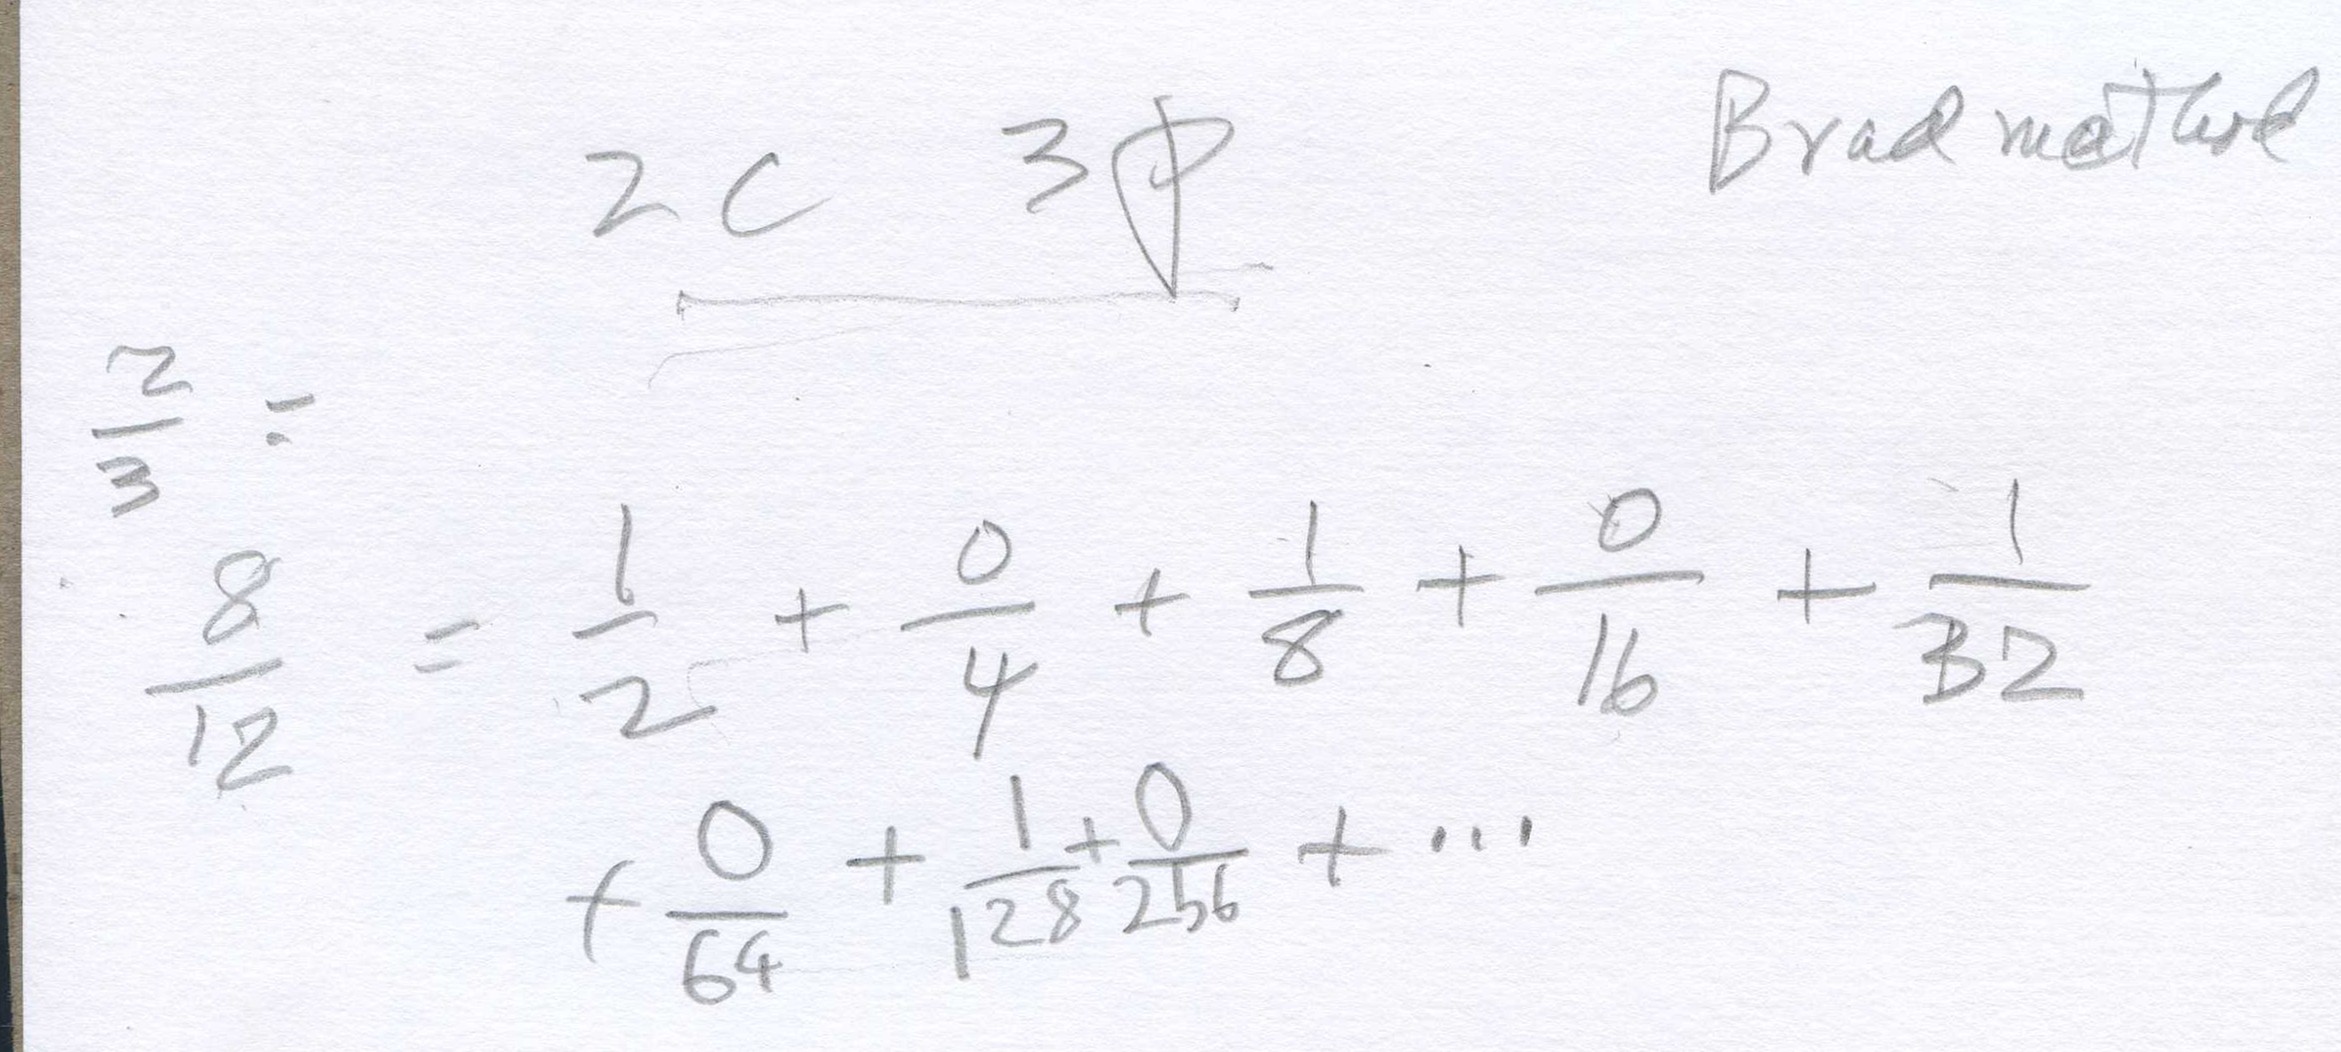 Brad method
2C 3φ
2/3 =
8/12 = 1/2 + 0/4 + 1/8 + 0/16 + 1/32
+ 0/64 + 1/128 + 0/256 + ...